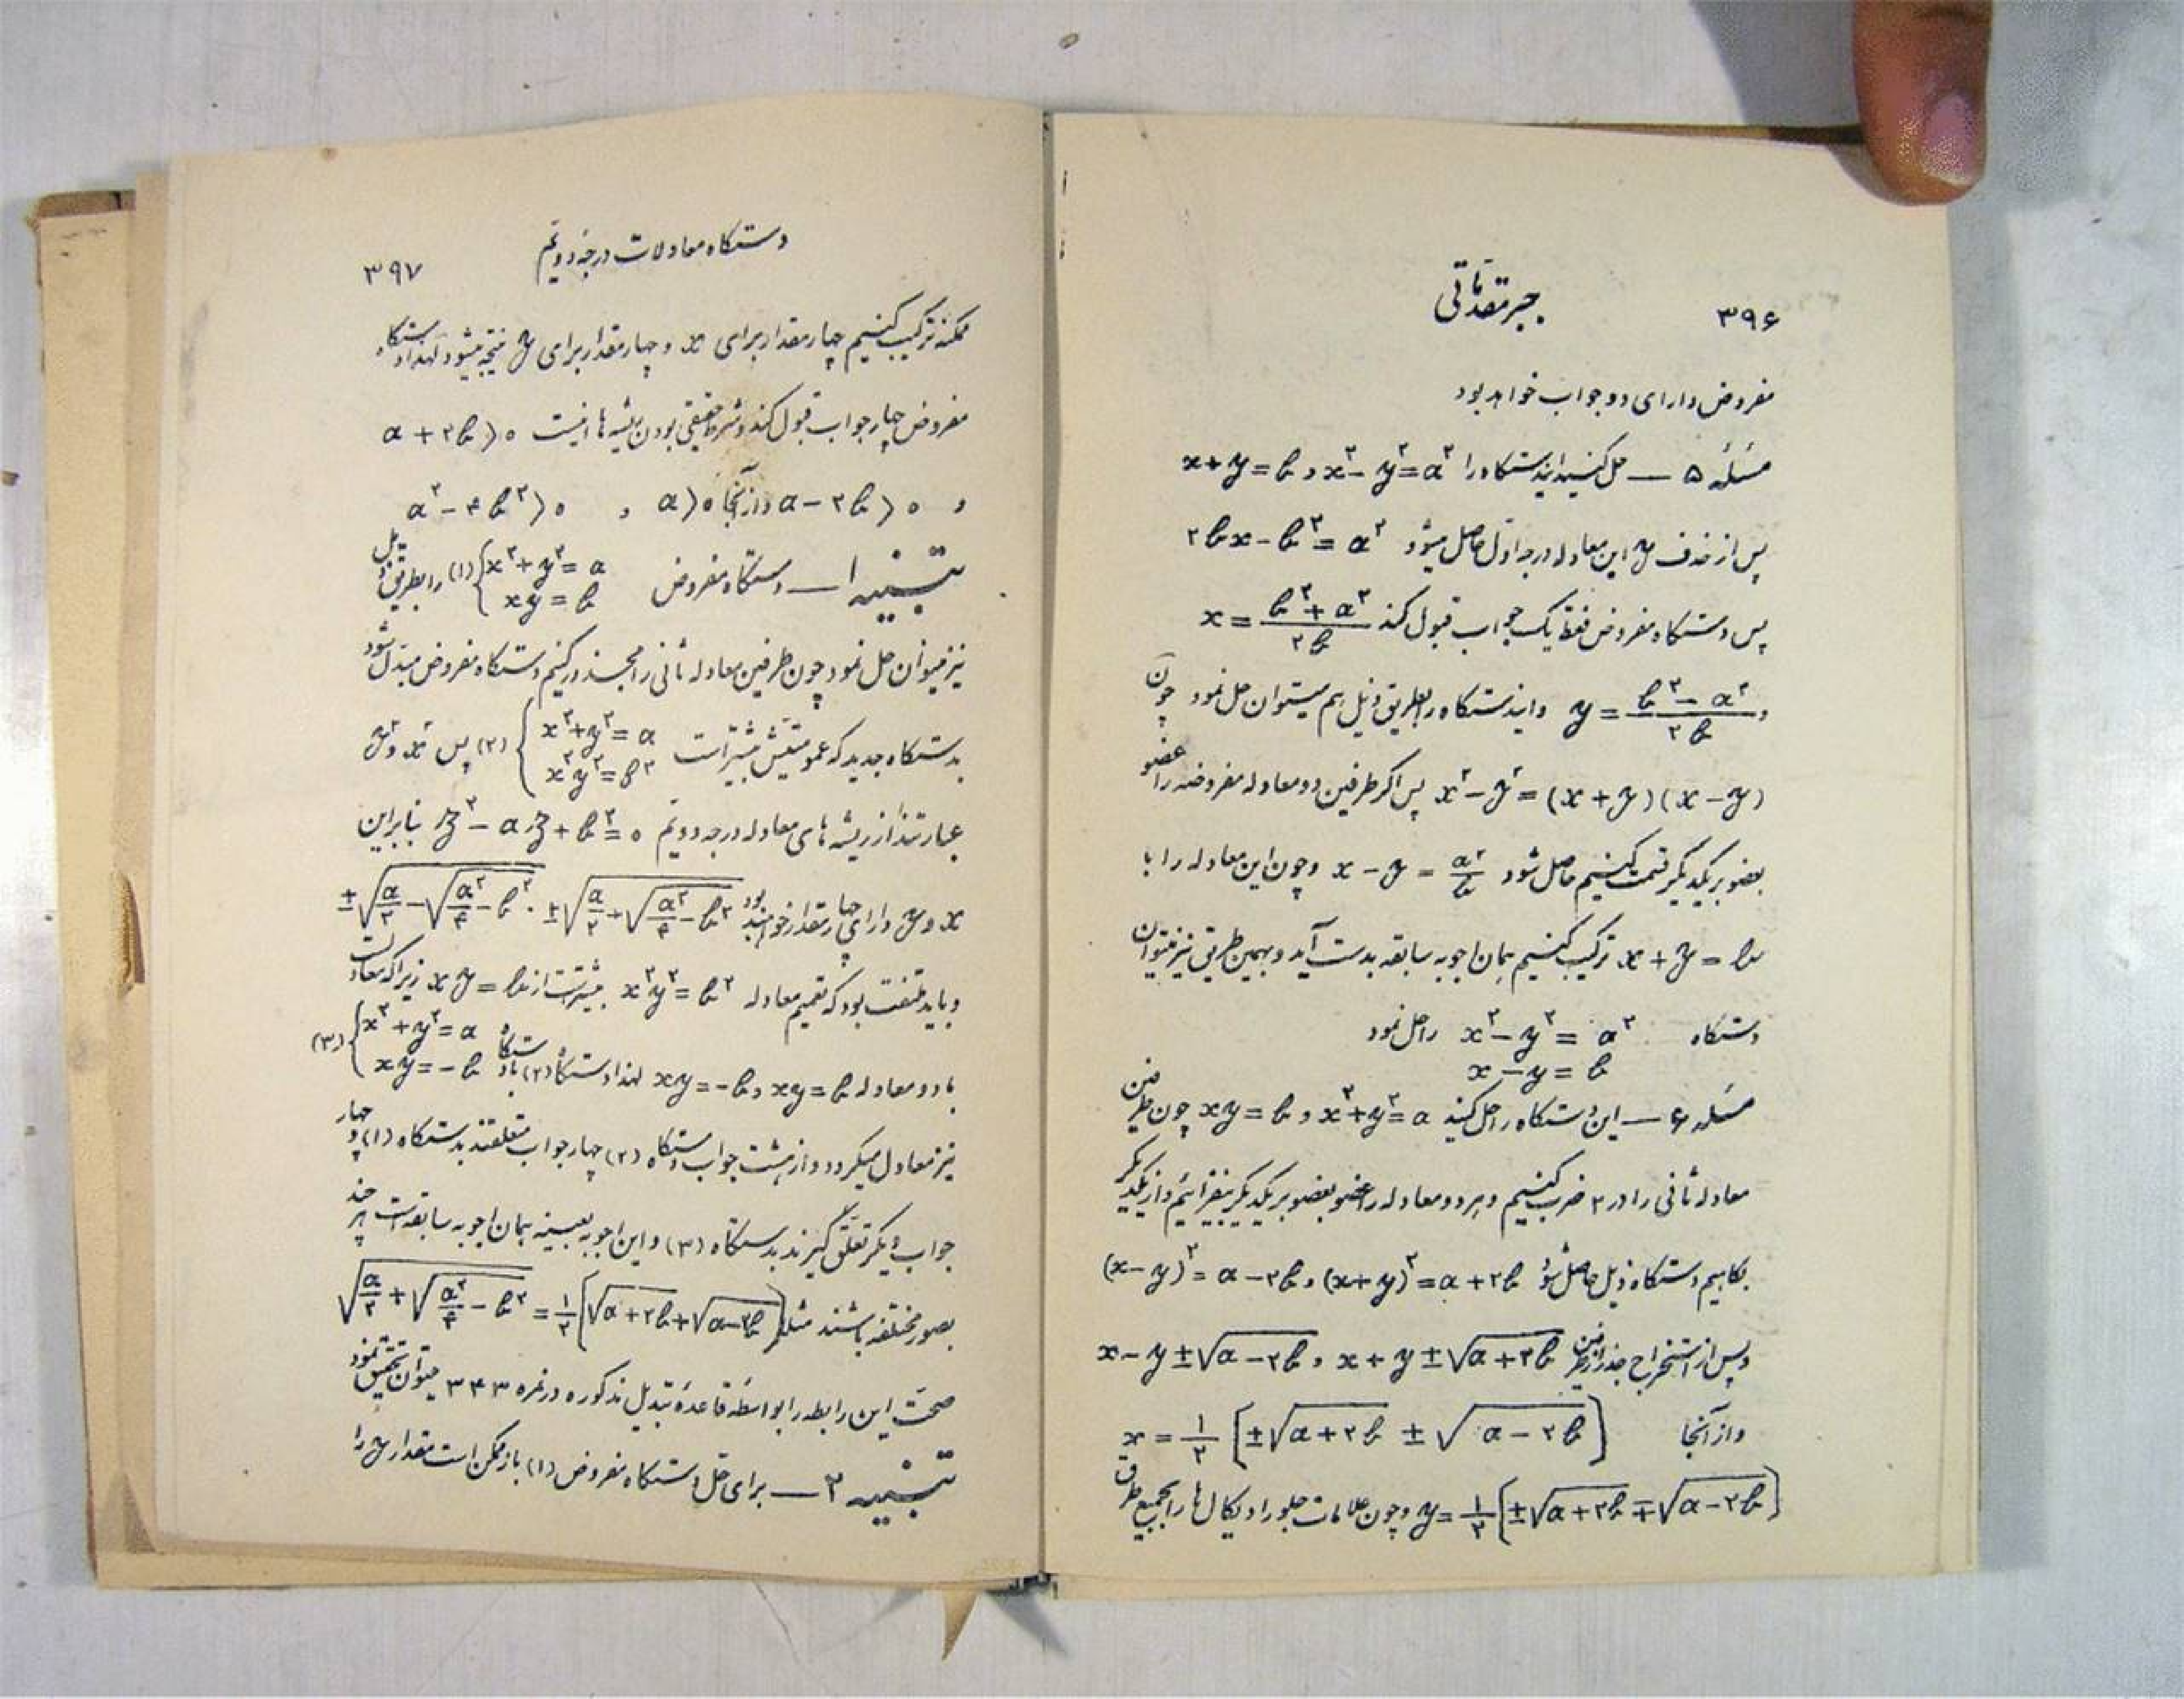 ۳۹۶ جبر مقدماتی
مفروض دارای دو جواب خواهد بود
مسئله ۵ — حل کنید این دستگاه را x+y=b و x²-y²=a²
پس از حذف y این معادله درجه اول حاصل میشود ۲bx-b²=a²
پس دستگاه مفروض فقط یک جواب قبول کند x=(b²+a²)/۲b
و y=(b²-a²)/۲b و این دستگاه را بطریق ذیل هم میتوان حل نمود چون
x²-y²=(x+y)(x-y) پس اگر طرفین دو معادله مفروضه را عضو
بعضو بر یکدیگر قسمت کنیم حاصل شود x-y=a²/b و چون این معادله را با
x+y=b ترکیب کنیم همان اجوبه سابقه بدست آید و بهمین طریق نیز میتوان
دستگاه x²-y²=a² را حل نمود
x-y=b
مسئله ۶ — این دستگاه را حل کنید x²+y²=a و xy=b چون طرفین
معادله ثانی را در ۲ ضرب کنیم و هر دو معادله را عضو بعضو بر یکدیگر بیفزائیم و از یکدیگر
بکاهیم دستگاه ذیل حاصل شود (x+y)²=a+۲b و (x-y)²=a-۲b
و پس از استخراج جذر از طرفین x+y±√a+۲b و x-y±√a-۲b
و از آنجا x=۱/۲[±√a+۲b ±√a-۲b]
y=۱/۲[±√a+۲b ∓√a-۲b] و چون علامات جلو رادیکال ها را بجمیع طرق
دستگاه معادلات درجه دویم ۳۹۷
ممکنه ترکیب کنیم چهار مقدار برای x و چهار مقدار برای y نتیجه میشود لهذا دستگاه
مفروض چهار جواب قبول کند و شرط حقیقی بودن ریشه ها اینست a+۲b⟩۰
و a-۲b⟩۰ و از آنجا a⟩۰ و a²-۴b²⟩۰
تنبیه ۱ — دستگاه مفروض {x²+y²=a xy=b (۱) را بطریق ذیل
نیز میتوان حل نمود چون طرفین معادله ثانی را مجذور کنیم دستگاه مفروض مبدل شود
بدستگاه جدید که عمومیتش بیشتر است {x²+y²=a x²y²=b² (۲) پس x² و y²
عبارتند از ریشه های معادله درجه دویم z²-az+b²=۰ بنابراین
x و y دارای چهار مقدار خواهند بود ±√a/۲+√a²/۴-b² ، ±√a/۲-√a²/۴-b²
و باید ملتفت بود که تعمیم معادله x²y²=b² بیشتر است از xy=b زیرا که معادلست
با دو معادله xy=b و xy=-b لهذا دستگاه (۲) با دستگاه {x²+y²=a xy=-b (۳)
نیز معادل میگردد و از هشت جواب دستگاه (۲) چهار جواب متعلقند بدستگاه (۱) و چهار
جواب دیگر تعلق گیرند بدستگاه (۳) و این اجوبه بعینه همان اجوبه سابقه است هر چند
بصور مختلفه باشند مثلا √a/۲+√a²/۴-b² = ۱/۲[√a+۲b+√a-۲b]
صحت این رابطه را بواسطه قاعده تبدیل مذکوره در نمره ۳۴۳ میتوان تحقیق نمود
تنبیه ۲ — برای حل دستگاه مفروض (۱) باز ممکن است مقدار y را